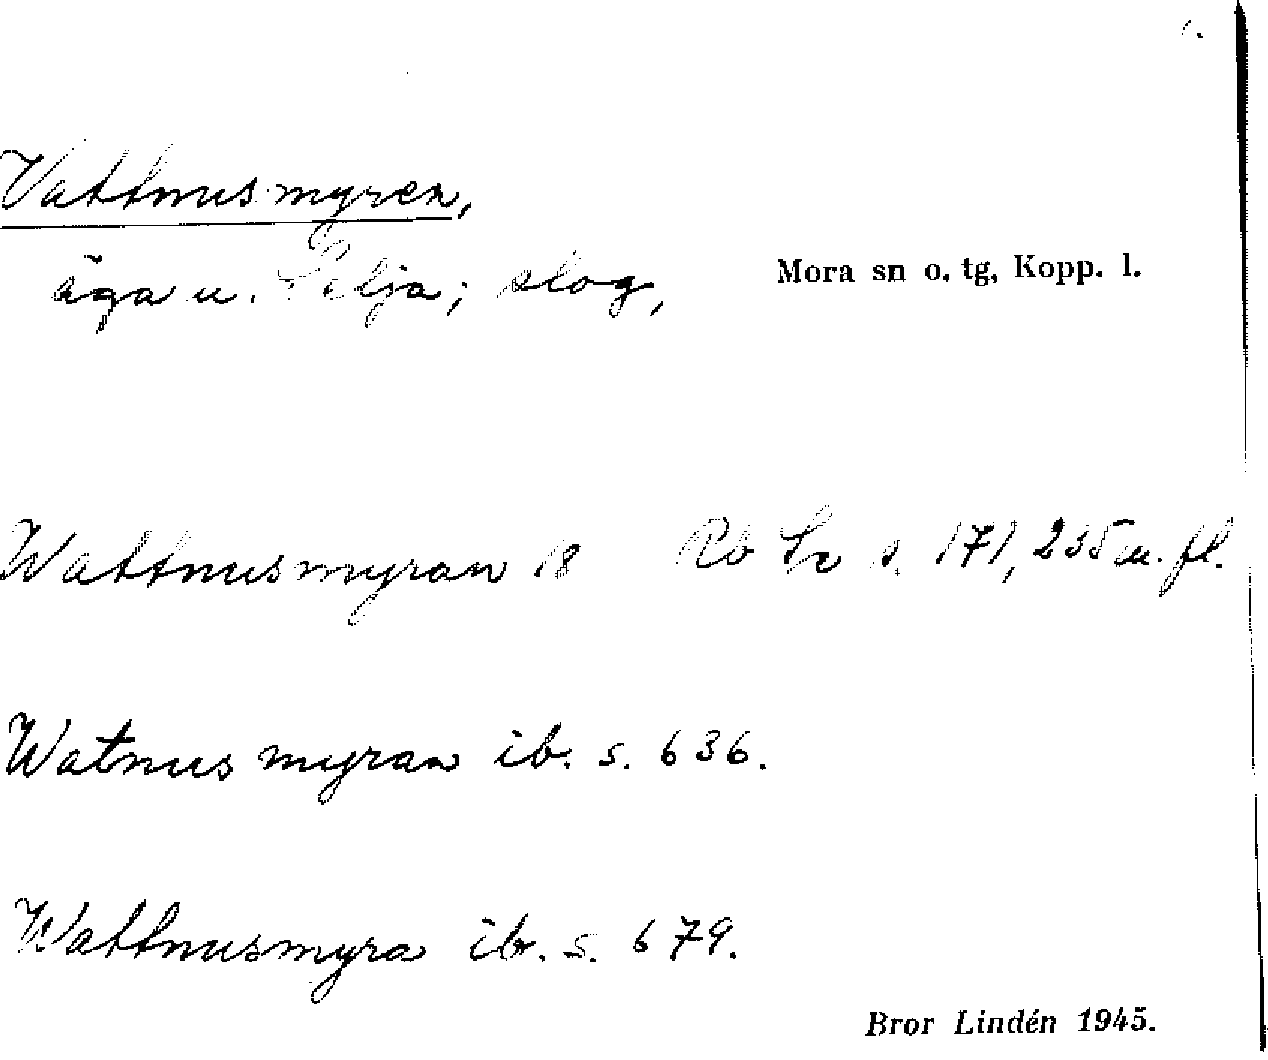 Vattnusmyren,
äga u. Selja; slog,
Mora sn o. tg, Kopp. l.
Wattnusmyran 18 Rb Sv s. 171, 235 m. fl.
Watnus myran ib. s. 636.
Wattnusmyra ib. s. 679.
Bror Lindén 1945.